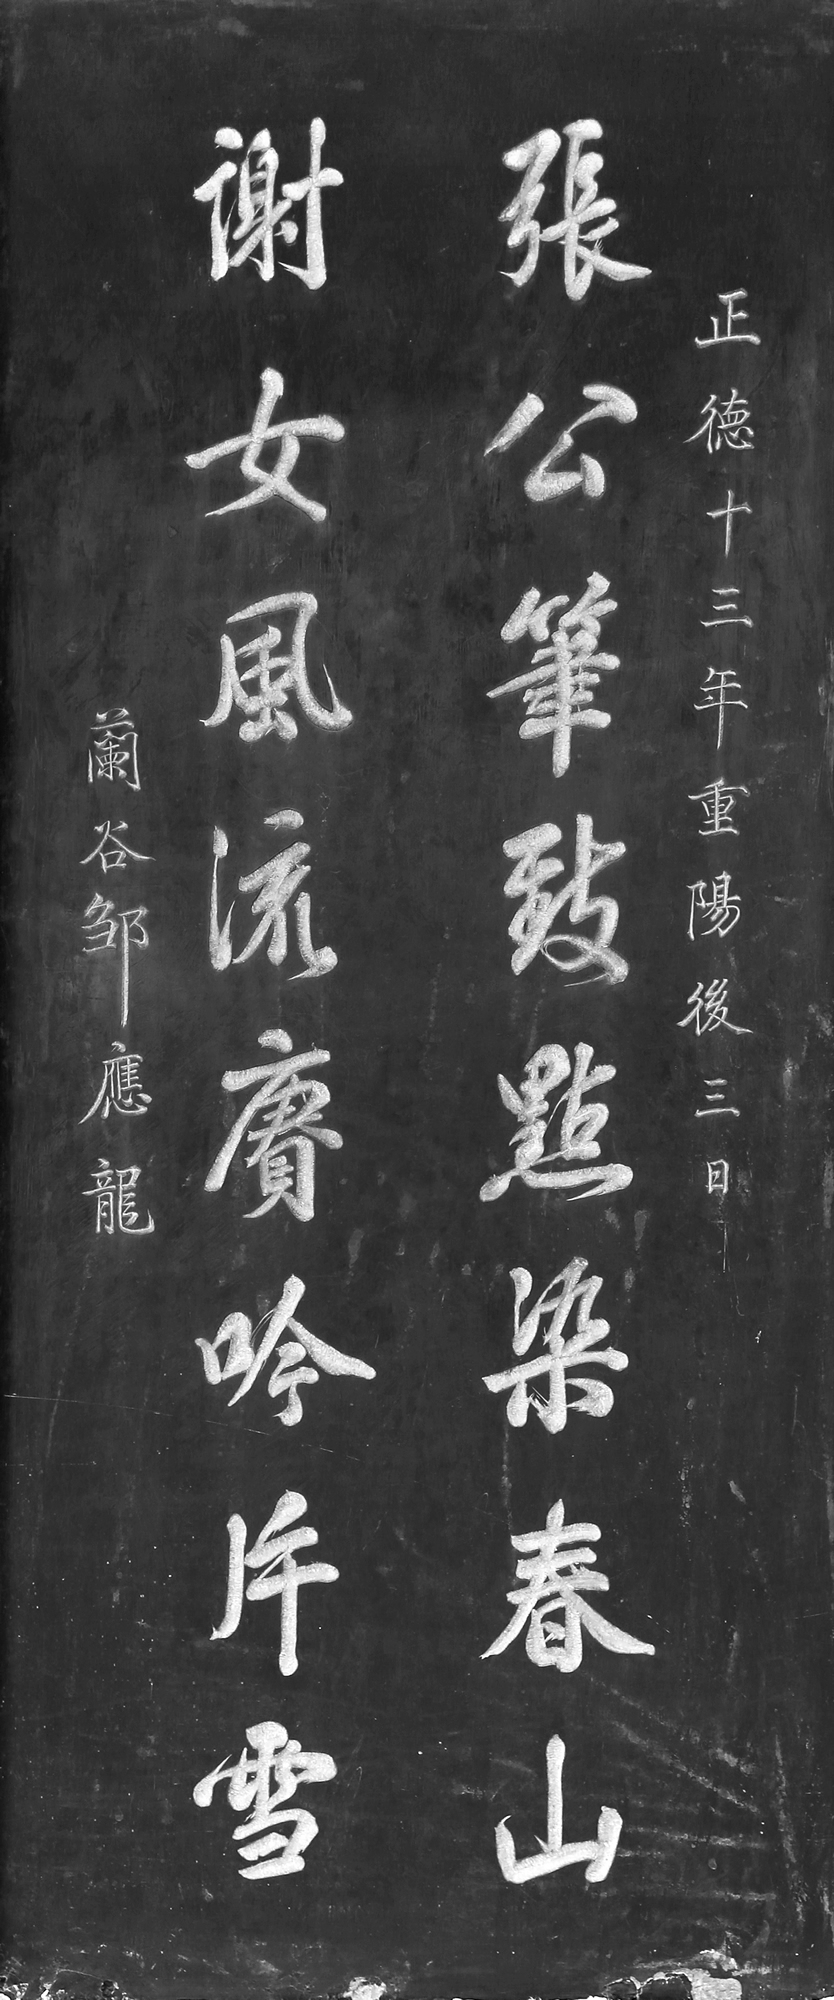 正德十三年重陽後三日
張公筆致點染春山
謝女風流賡吟片雪
蘭谷邹應龍